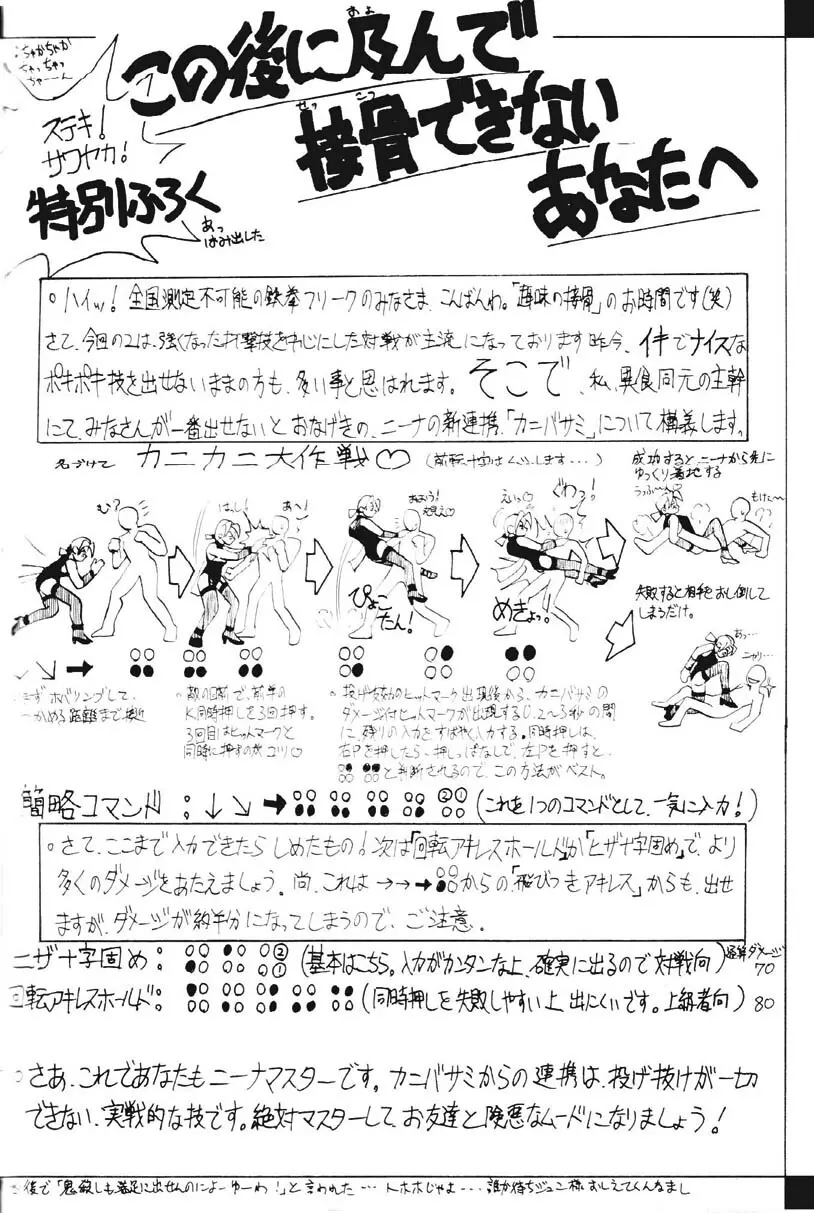 ちゃかちゃか
ちゃっちゃっ
ちゃーーん
この後に及んで
およ
接骨できない
せっこつ
あなたへ
ステキ!
サワヤカ!
特別ふろく
あっ
はみ出した
○ハイッ! 全国測定不可能の鉄拳フリークのみなさま、こんばんわ。「趣味の接骨」のお時間です(笑)
さて、今回の2は、強くなった打撃技を中心にした対戦が主流になっております昨今、イキでナイスな
ポキポキ技を出せないままの方も、多い事と思はれます。そこで、私、異食同元の主幹
にて、みなさんが一番出せないとおなげきの、ニーナの新連携、「カニバサミ」について構義します。
名づけて カニカニ大作戦♡
成功すると、ニーナから先に
ゆっくり着地する
うっふーん
もけた〜
む?
はし!
あ〜!
えいっ♡
ぐわっ!
ぴょこ
たん!
めきょっ。
失敗すると相手をおし倒して
しまうだけ。
あっ…
ニヤリ…
まずホバリングして、
つかめる距離まで接近
○敵の目前で、前半の
K同時押しを3回押す。
3回目はヒットマークと
同時に押すのがコツ♡
○投げ有効のヒットマーク出現後から、カニバサミの
ダメージ付ヒットマークが出現する0.2〜3秒の間
に、残りの入力をすばやく入力する。同時押しは、
右Pを押したら、押しっぱなしで、左Pを押すと、
と判断されるので、この方法がベスト。
簡略コマンド:↓↘➡ ②① (これを1つのコマンドとして、一気に入力!)
○さて、ここまで入力できたらしめたもの!次は「回転アキレスホールド」か「ヒザ十字固め」で、より
多くのダメージをあたえましょう。尚、これは→→→からの「飛びつきアキレス」からも、出せ
ますが、ダメージが約半分になってしまうので、ご注意。
ヒザ十字固め: ② ① (基本はこちら。入力がカンタンな上、確実に出るので対戦向) ダメージ 70
回転アキレスホールド: (同時押しを失敗しやすい上、出にくいです。上級者向) 80
○さあ、これであなたもニーナマスターです。カニバサミからの連携は、投げ抜けが一切
できない、実戦的な技です。絶対マスターして、お友達と険悪なムードになりましょう!
後で「鬼殺しも満足に出せんのによーゆーわ!」と言われた…トホホじゃよ…誰か待ちジュン様おしえてくんなまし